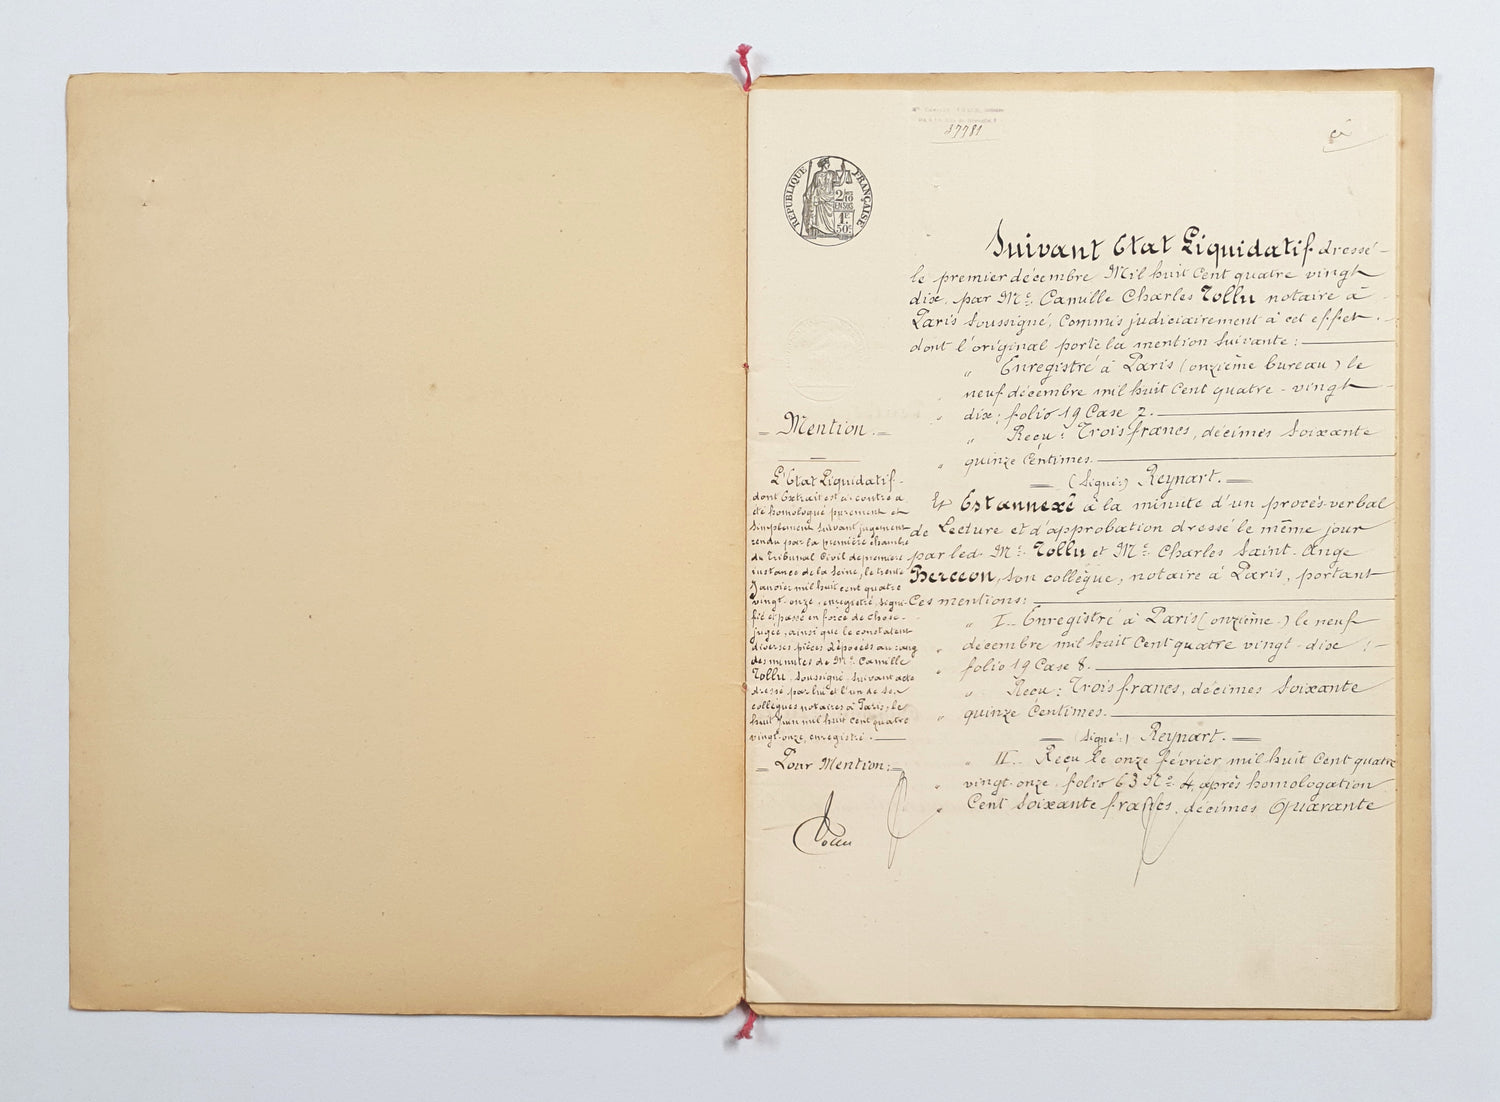 47781
RÉPUBLIQUE FRANÇAISE
2/10
EN SUS
1F.
50c.
Suivant Etat Liquidatif dressé
le premier décembre Mil huit Cent quatre vingt
dix, par Me. Camille Charles Tollu notaire à
Paris soussigné, Commis judiciairement à cet effet
dont l'original porte la mention suivante :
" Enregistré à Paris (onzième bureau) le
" neuf décembre mil huit Cent quatre-vingt
" dix ; folio 19 Case 2.
" Reçu : Trois francs, décimes soixante
" quinze Centimes.
(Signé:) Reynart.
Et Est annexé à la minute d'un procès-verbal
de Lecture et d'approbation dressé le même jour
par led. Me. Tollu et Me. Charles Saint-Ange
Berceon, son collègue, notaire à Paris, portant
Ces mentions :
" I_ Enregistré à Paris (onzième.) le neuf
" décembre mil huit Cent quatre vingt-dix ;
" folio 19 Case 8.
" Reçu : Trois francs, décimes Soixante
" quinze Centimes.
(Signé:) Reynart.
" II_ Reçu le onze février mil huit Cent quatre
" vingt-onze, folio 63 No. 4, après homologation
" Cent Soixante francs, décimes Quarante
Mention.
L'Etat Liquidatif
dont Extrait est ci-contre a
été homologué purement et
simplement suivant jugement
rendu par la première chambre
du Tribunal Civil de première
instance de la Seine, le trente
Janvier mil huit cent quatre
vingt-onze, enregistré, signi-
fié et passé en force de chose
jugée, ainsi que le constatent
diverses pièces déposées au rang
des minutes de Me. Camille
Tollu, soussigné, suivant acte
dressé par lui et l'un de ses
collègues notaires à Paris, le
huit Juin mil huit Cent quatre
vingt-onze, enregistré.
Pour Mention :
Tollu